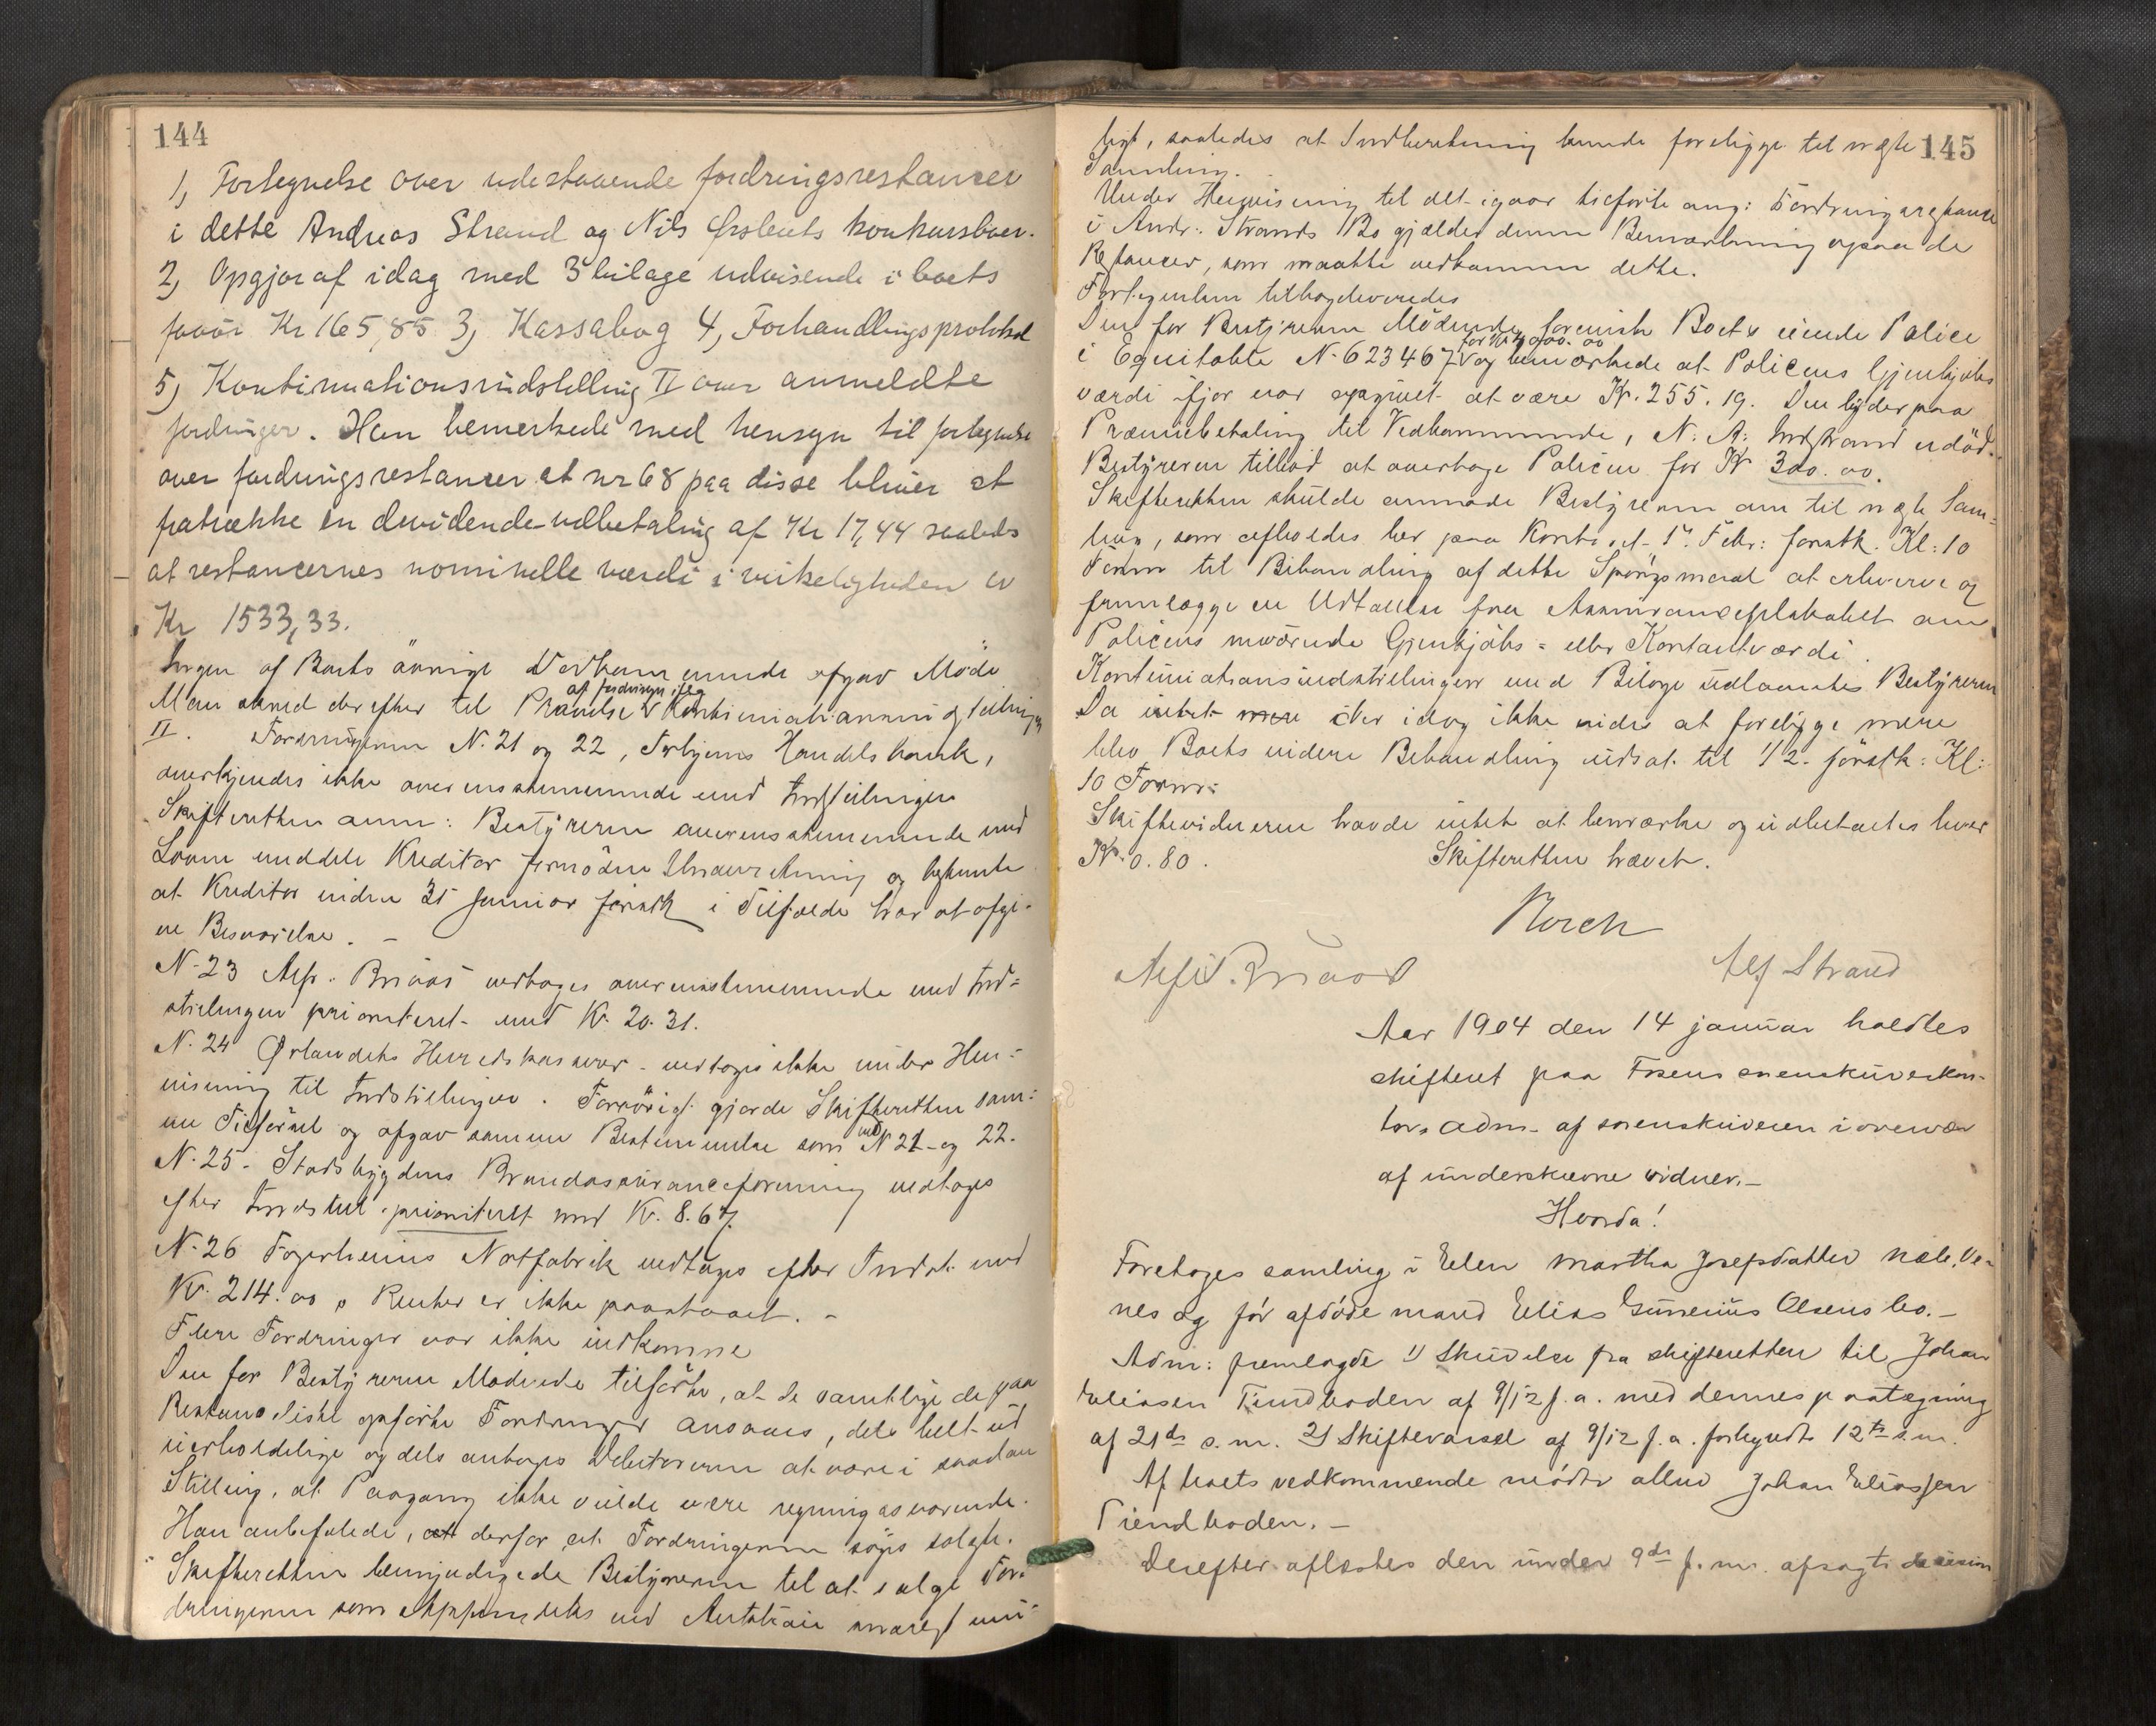 144
1, Fortegnelse over udestaaende fordringsrestancer
i dette Andreas Strand og Nils Ørsleuts konkursboer.
2, Opgjør af idag med 3 bilage udvisende i boets
favør Kr 165,85 3, Kassabog 4, Forhandlingsprotokol
5, Kontinuationsindstilling II over anmeldte
fordringer. Han bemerkede med hensyn til fortegnelse
over fordringsrestancer at nr 68 paa disse bliver at
fratrække en devidende-udbetaling af Kr 17,44 saaledes
at restancernes nominelle værdi i virkeligheden er
Kr 1533,33.
Ingen af Boets øvrige Vedkommende afgav Møde
af fordringer ifølg
Man skred derefter til Prøvelse v Kontinuationsindstillingen
II. Fordringerne N. 21 og 22, Handelsbank,
anerkjendes ikke overensstemmende med Indstillingen
Skifteretten anm: Bestyreren overensstemmende med
Loven meddele Kreditor fornøden Underretning og bestemte
at Kreditor inden 31 Januar førstk i Tilfælde har at afgi-
ve Besvarelse. -
N. 23 Alfr. Braas vedtages overensstemmende med Ind=
stillingen prioriteret med Kr. 20.31.
N. 24 Ørlandets Herredskasserer vedtages ikke under Hen=
visning til Indstillingen. Forøvrigt gjorde Skifteretten sam=
me Tilførsel og afgav samme Bestemmelse som ved N 21 og 22.
N. 25. Stadsbygdens Brandassuranceforening vedtages
efter Indstill. prioriteret med Kr. 8.67.
N. 26 Fagerheims Notfabrik vedtages efter Indst. med
Kr. 214.00, Renter er ikke paastaaet. -
Flere Fordringer var ikke indkomne
Den for Bestyreren Mødende tilførte, at de samtlige de paa
Restanceliste opførte Fordringer ansaaes, dels helt ud
uerholdelige og dels antages Debitorerne at være i saadan
Stilling, at Paagang ikke vilde være regningssvarende.
Han anbefalede, at derfor at Fordringerne søges solgte.
Skifteretten bemyndigede Bestyreren til at sælge For=
dringerne som ved Auktion snarest mu=
145
ligt, saaledes at Indberetning kunde foreligge til næste
Samling.
Under Henvisning til det igaar tilførte ang: Fordringsrestancer
i Andr: Strands Bo gjælder denne Bemærkning ogsaa de
Restancer, som maatte vedkomme dette.
Fortegnelsen tilbageleveredes
Den for Bestyreren Mødende foreviste Boets eiende Police
for Kr 4000.00
i Equitable N. 623467 V og bemærkede at Policens Gjenkjøbs
værdi ifjor var opgivet at være Kr. 255.19. Den lyder paa
Præmiebetaling til Vedkommende, N. A. Indstrand ved død.
Bestyreren tilbød at overtage Policen for Kr 300.00.
Skifteretten skulde anmode Bestyreren om til næste Sam=
ling, som afholdes her paa Kontoret 1. Febr: førstk. Kl: 10
Form til Behandling af dette Spørgsmaal at erhverve og
fremlægge en Udtalelse fra Assuranceselskabet om
Policens nuværende Gjenkjøbs= eller Kontantværdi.
Kontinuationsindstillingen med Bilage udlaantes Bestyreren
Da intet mere der idag ikke vides at foreligge mere
blev Boets videre Behandling udsat til 1/2. førstk: Kl:
10 Form:
Skiftevidnerne havde intet at bemærke og udbetaltes hver
Kr. 0.80. Skifteretten hævet.
Norch
Alfr. Braas Alf Strand
Aar 1904 den 14 januar holdtes
skifteret paa Fosens sorenskriverkon-
tor, adm. af sorenskriveren i overvær
af underskrevne vidner.-
Hvorda!
Foretoges samling i Elen Martha Josefsdatter Nebb, Ve-
nes og før afdøde mand Elias Gunerius Olsens bo.-
Adm: fremlagde 1) Skrivelse fra skifteretten til Johan
Eliasen Tiendboden af 9/12 f.a. med dennes paategning
af 21de s.m. 2) Skiftevarsel af 9/12 f.a. forkyndt 12te s.m.
Af boets vedkommende mødte allene Johan Eliassen
Tiendboden.-
Derefter aflæstes den under 9de f.m. afsagte decision